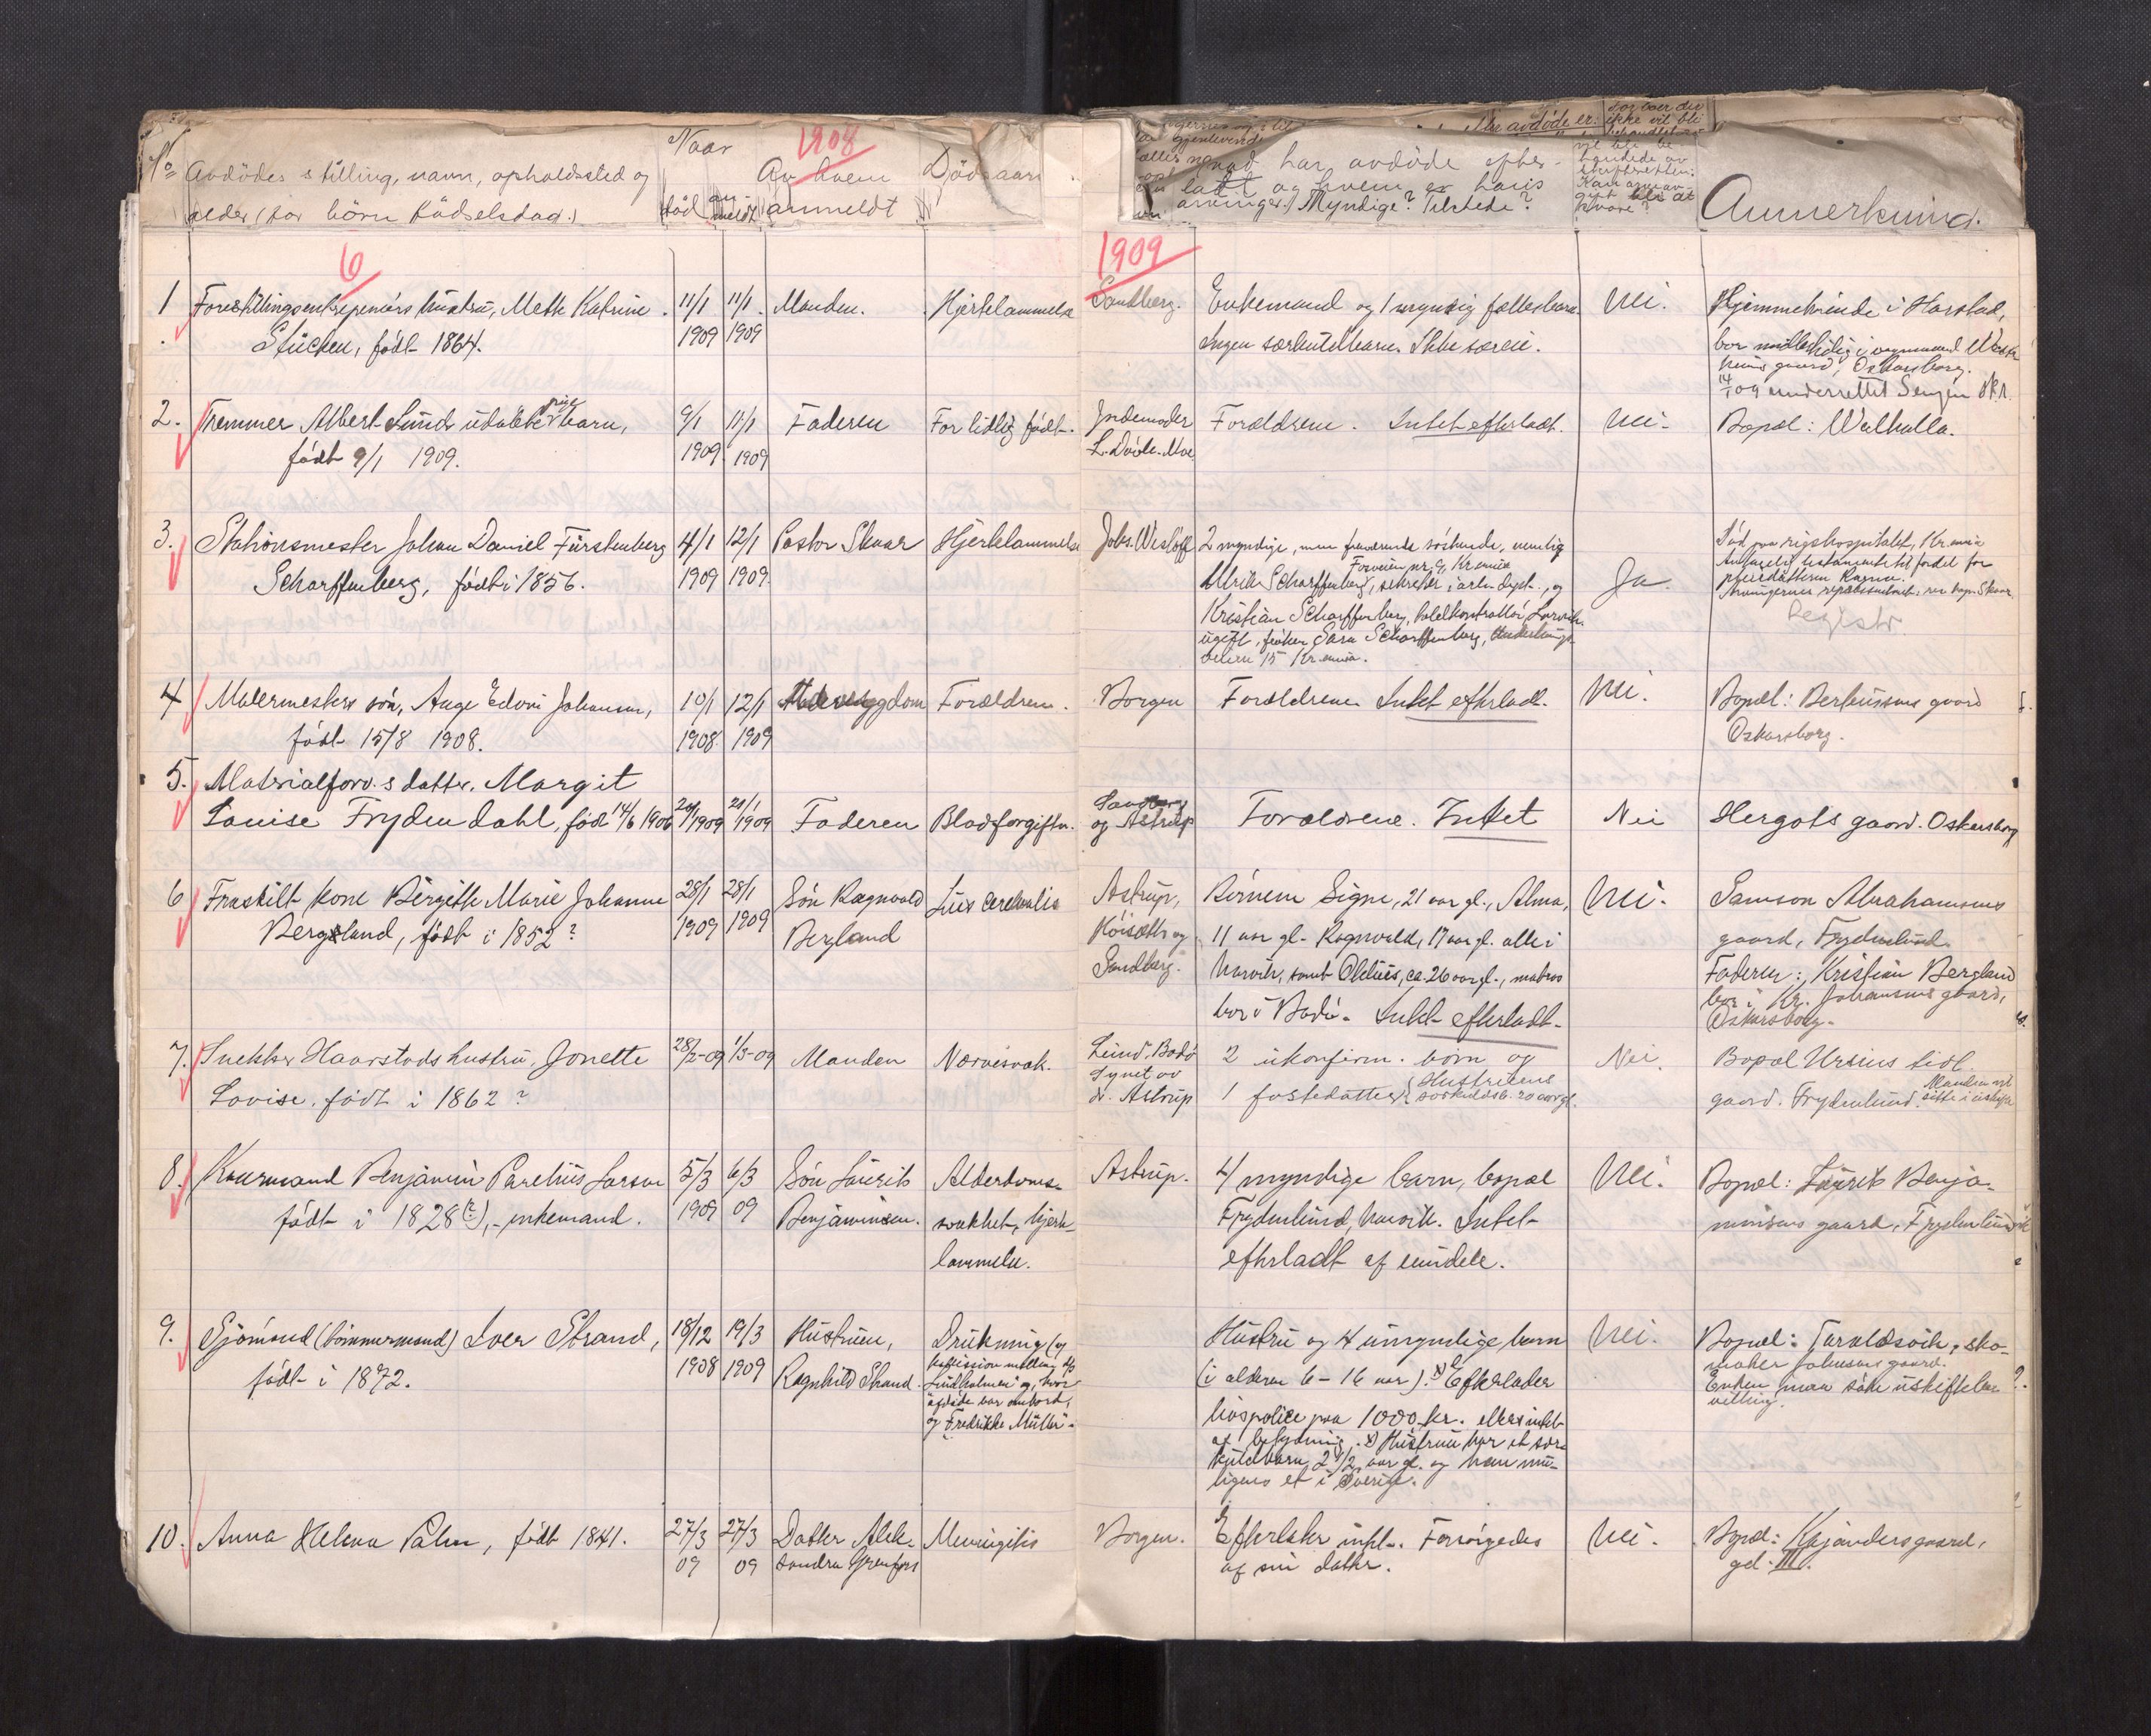 No
Avdödes stilling, navn, opholdssted og
alder (for börn födselsdag.)
Naar
död
an
meldt
1908
Av hvem
anmeldt
Dödsaars
hvad har avdöde efter-
ladt og hvem er hans
arvinger? Myndige? Tilstede?
Anmerkning.
6
1909
1
Forestillingsentreprenörs hustru, Mette Katrine
Stücken, födt 1864.
11/1
1909
11/1
1909
Manden.
Hjertelammelse
Sandberg.
Enkemand og 1 myndig fællesbarn.
Ingen særkuldbarn. Ikke særeie.
Nei.
Hjemmehörende i Harstad,
bor midlertidig i
gaard, Oskarsborg.
14/1 09 underrettet Senjen skr.
2.
Tremmer Albert Lunds udöbte pige barn,
födt 9/1 1909.
9/1
1909
11/1
1909
Faderen
For tidlig födt.
Jordemoder
L. Dvöle-Moe
Forældrene. Intet efterladt.
Nei.
Bopæl: Walhalla.
3.
Stationsmester Johan Daniel Fürstenberg
Scharffenberg, födt i 1856.
4/1
1909
12/1
1909
Pastor Skaar
Hjertelammelse
Johs. Wisløff
2 myndige, men fraværende söskende, nemlig
Forveien nr. 9, Kr.ania
Ulrik Scharffenberg, sekretær i arb. dept., og
Kristian Scharffenberg, toldkontrollör, Larvik.
ugift, fröken Sara Scharffenberg,
veien 15 Kr.ania.
Ja
Död paa rigshospitalet, Kr.ania
Antagelig testamente til fordel for
pleiedatteren Ragna.
Arvingernes repræsentant: res. kap. Skaar
Registr
4
Malermesters sön, Aage Edvin Johansen,
födt 15/8 1908.
10/1
1908
12/1
1909
Forældrene.
Borgen
Forældrene Intet efterladt.
Nei.
Bopæl: Berteussens gaard
Oskarsborg.
5.
Matrialforv.s datter, Margit
Louise Frydendahl, föd 14/6 1906
20/1 1909
20/1
1909
Faderen
Blodforgiftn.
Sandberg
og Astrup
Forældrene. Intet
Nei
Hergots gaard. Oskarsborg
6
Fraskilt kone Birgitte Marie Johanne
Bergsland, födt i 1852?
28/1
1909
28/1
1909
Sön Ragnvald
Bergland
Lues cerebralis
Astrup,
Köisæth og
Sandberg.
Börnene Signe, 21 aar gl., Alma,
11 aar gl. Ragnvald, 17 aar gl. alle i
Narvik, samt Oluis, ca. 26 aar gl., matros
bor i Bodö. Intet efterladt.
Nei.
Samson Abrahamsens
gaard, Frydenlund.
Faderen: Kristian Bergland
bor i Kr. Johansens gaard,
Oskarsborg.
7.
Snekker Haarstads hustru, Jonette
Lovise. födt i 1862?
28/2-09
1/3-09
Manden
Nervesvæk.
Lund. Bodö
Synet av
d. Astrup
2 ukonfirm. börn og
1 fosterdatter
Hustruens
særkuldsb. 20 aar gl.
Nei.
Bopæl Ursins tidl.
gaard. Frydenlund.
Manden vil
sitte i uskifte
8.
Kaarmand Benjamin Parelius Larsen
födt i 1828(?), - enkemand.
5/3
1909
6/3
09
Sön Laurits
Benjaminsen.
Alderdoms-
svakhet, hjerte-
lammelse.
Astrup.
4 myndige barn, bopæl
Frydenlund, Narvik. Intet
efterladt af eiendele.
Nei.
Bopæl: Laurits Benja-
minsens gaard, Frydenlund
9.
Sjömand (tömmermand) Iver Strand,
födt i 1872.
18/12
1908
19/3
1909
Hustruen,
Ragnhild Strand.
Drukning (v
kollission mellem d/s
Lindholmen og, hvor
afdöde var ombord,
og Fredrikke Müller.
Hustru og 4 umyndige barn
(i alderen 6-16 aar). x) Efterlader
livspolice paa 1000 kr. ellers intet
af betydning. x) Hustruen har et sær-
kuldbarn 21/2 aar gl. og han mu-
ligens et i Sverige.
Nei.
Bopæl: Taraldsvik, sko-
maker Johansens gaard.
Enken maa söke uskiftebe-
villing.
10.
Anna Helena Palm, födt 1841.
27/3
09
27/3
09
Datter Alek-
sandra Grenfors
Meningitis
Borgen.
Efterlader intet. Forsörgedes
af sin datter.
Nei.
Bopæl: Kjanders gaard,
gd. III.